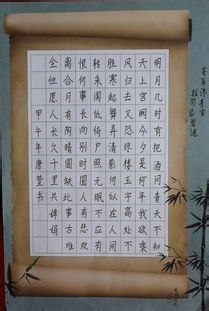 明月几时有把酒问青天不知
天上宫阙今夕是何年我欲乘
风归去又恐琼楼玉宇高处不
胜寒起舞弄清影何似在人间
转朱阁低绮户照无眠不应有
恨何事长向别时圆人有悲欢
离合月有阴晴圆缺此事古难
全但愿人长久千里共婵娟
甲午年唐书